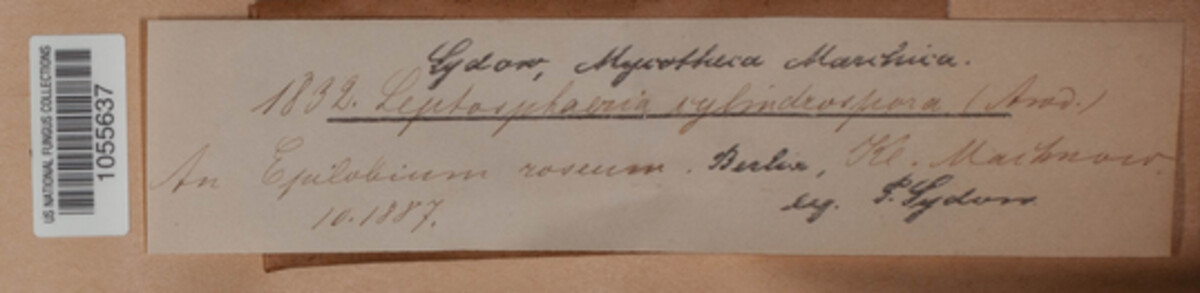 US NATIONAL FUNGUS COLLECTIONS
1055637
Sydow, Mycotheca Marchica.
1832. Leptosphaeria cylindrospora (Awd.)
An Epilobium roseum. Berlin, Kl. Machnow
10.1887.
leg. P. Sydow